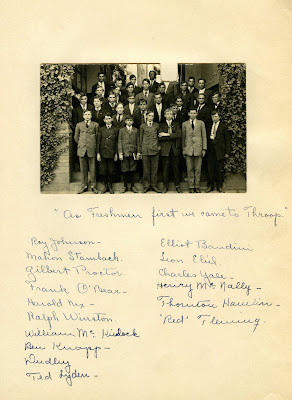 "As Freshmen first we came to Throop"
Roy Johnson -
Mahon Stamback.
Gilbert Proctor
Frank O'Near
Harold
Ralph Winston.
William Mc
Ben Knapp -
Dudley
Ted Lyden -
Elliot Bandini
Leon Elid
Charles Yale -
Henry Mc Nally -
Thornton Hamlin -
'Red' Fleming.